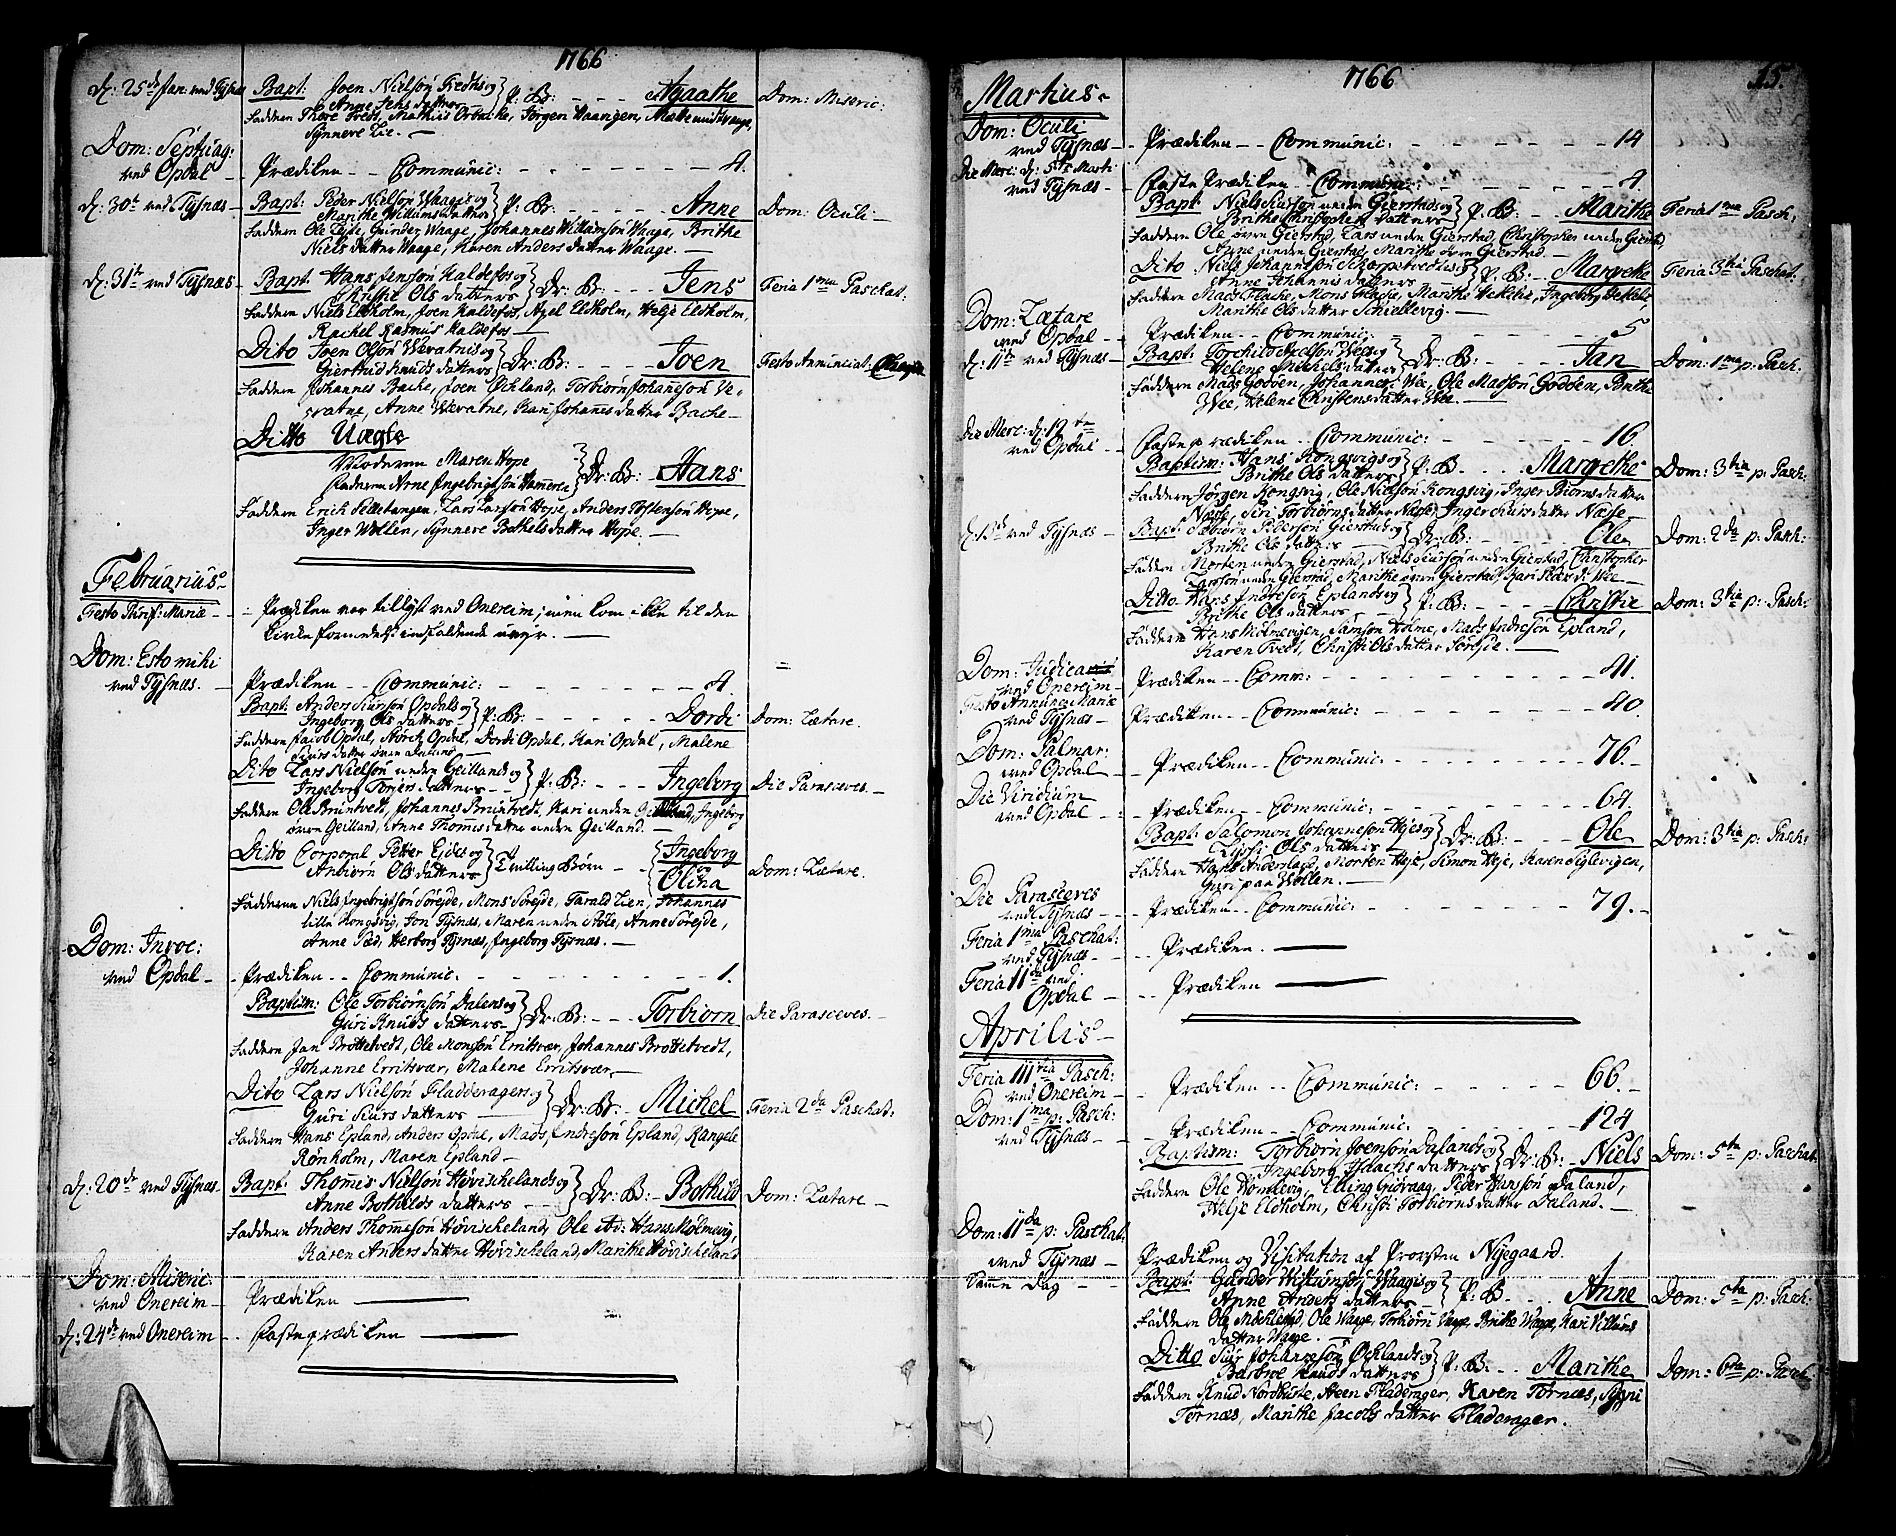 1766
d: 25de Jan: ved Tÿsnes
Bapt: Joen Nielsön Tvedts og
Anne datters P: B: Agaathe Dom: Miseric:
Faddern Thore Tvedt, Mathias Jörgen Haaugen, Waage,
Synneve Lie.
Dom: Septuag:
ved Opdal Prædiken Communic: 4.
d: 30t ved Tÿsnæs Bapt: Peder Nielsön Waags og
Marithe Willums datter P: B: Anne Dom: Oculi
Faddern Ole Gunder Waage, Johannes Willumsön Waage, Brithe
Niels datter Waage, Karen Anders datter Waage.
d: 31te ved Tÿsnæs Bapt: Hans Jensön Kaldefos og
Christi Ols datters Dr: B: Jens Feria 1ma Paschat:
Faddern Niels Eldholm, Joen Kaldefos, Axel Eldholm, Helje Eldholm,
Rachel Rasmus Kaldefos
Dito Joen Olsön Wevatnis og
Giertrud Knuds datters Dr: B: Joen Festo Annunciat:
Faddern Johannes Bache, Joen Öckland, Torbiorn Johannesön We-
vatne, Anne Wevatne, Kari Johannes datter Bache
Ditto Uægte
Moderen Maren Hope
Faderen Arne Ingebrigtsön Dr: B: Hans
Faddern Erich Lars Larsön Hope, Anders Hope,
Inger Wollen, Synneve Bothels datter Hope.
Februarius
Festo Purif: Mariæ Prædiken var tillyst ved Onereim; men kom ikke til den
Kirke formedelst indfaldende uveyr.
Dom: Esto mihi
ved Tÿsnæs. Prædiken Communic: 4.
Bapt: Anders Siursön Opdals og
Ingeborg Ols datters P: B: Dordi Dom: Lætare.
Faddern Jacob Opdal, Opdal, Dordi Opdal, Kari Opdal, Malene
Siurs datter
Dito Lars Nielsön neden Geilland og
Ingeborg datters P: B: Ingeborg Die Parasceves.
Faddern Ole Bruntvedt, Johannes Bruntvedt, Kari neden Geilland, Ingeborg
oven Geilland, Anne Thomis datter neden Geilland.
Ditto Corporal Petter og
Anbiörn Ols datters Tvilling Börn Ingeborg
Olina Dom: Lætare.
Fadderne Niels Ingebrigtsön Sörejde, Mons Sörejde, Tarald Lien, Johannes
lille Kongsvig, Jon Tÿsnæs, Maren neden Anne Sörejde,
Anne Herborg Tÿsnæs, Ingeborg Tÿsnæs.
Dom: Invoc:
ved Opdal Prædiken Communic. 1.
Baptism: Ole Torbiörnsön Dalens og
Guri Knuds datters Dr: B: Torbiorn Die Parasceves.
Faddern Jan Brottetvedt, Ole Monsön Erritsvær, Johannes Brottetvedt,
Johanne Erritsvær, Malene Erritsvær
Dito Lars Nielsön Fladderagers og
Guri Siurs datters Dr: B: Michel Feria 2da Paschat:
Faddern Hans Epland, Anders Opdal, Mads Andresön Epland, Rangele
Rönholm, Maren Epland
d: 20de ved Tÿsnæs Bapt: Thomes Nielsön Hövischelands og
Anne Bothilds datters Dr: B: Bothild Dom: Lætare
Faddern Anders Thomesön Hövischeland, Ole Hans Malmevig,
Karen Anders datter Hövischeland, Marithe Hövischeland
Dom: Miseric:
ved Onereim Prædiken
d: 24de ved Onereim Fasteprædiken
1766 15.
Martius
Dom: Oculi
ved Tÿsnæs Prædiken Communic: 14
Die Merc: d: 5te Marti
ved Tÿsnæs Fasteprædiken Communic: 4
Bapt: Niels Siursön neden Gierstad og
Brithe Christophers datters P: B: Marithe Feria 1ma Pasch:
Faddern Ole oven Gierstad, Lars neden Gierstad, Christopher neden Gierstad,
Anne neden Gierstad, Marithe oven Gierstad.
Dito Niels Johannesön og
Anne Johannis datters P: B: Margrethe Feria 3tia Paschat.
Faddern Mads Mons Marithe Ingeborg
Marithe Ols datter Schiellevig.
Dom: Lætare
ved Opdal Prædiken Communic: 5
d: 11te ved Tÿsnæs Bapt: Torchild Axelsön Wees og
Helene Michels datters Dr: B: Jan Dom: 1ma p: Pasch.
Faddern Mads Godöen, Johannes Wee, Ole Madsön Godöen, Brithe
Wee, Helene Christens datter Wee.
Die Merc: d: 12te
ved Opdal Fasteprædiken Communic: 16.
Baptism: Hans Kongsvigs og
Brithe Ols datters P: B: Margrethe Dom: 3tia p: Pasch:
Faddern Jörgen Kongsvig, Ole Nielsön Kongsvig, Inger Biorns datter
Næse, Siri Torbiorns datter Næse, Inger Siurs datter Næse
ved Tÿsnæs Bapt: Pedersön Gierstad og
Brithe Ols datters Dr: B: Ole Dom: 2da p: Pasch:
Faddern Morten neden Gierstad, Niels Siursön neden Gierstad, Christopher
Larssön neden Gierstad, Marithe oven Gierstad, Kari Wee
Ditto Hans Andresön Eplands og
Brithe Ols datters P: B: Christie Dom: 3tia p: Pasch:
Faddern Hans Malmevigen, Samson Holme, Mads Andresön Epland,
Karen Tvedt, Christi Ols datter Sörejde.
Dom: Judica
ved Onereim Prædiken Comm: 41.
Festo Annunc: Mariæ
ved Tÿsnæs Prædiken Communic: 40.
Dom: Palmar:
ved Opdal Prædiken Communic: 76.
Die Viridium
ved Opdal Prædiken Communic: 64.
Bapt: Salomon Johannesön og
Ols datters Dr: B: Ole Dom: 3tia p: Pasch:
Faddern Hans Andersland, Morten Simon Karen Siglevigen,
Guri paa Wollen.
Die Parasceves
ved Tÿsnæs Prædiken Communic: 79.
Feria 1ma Paschat:
ved Tÿsnæs Prædiken.
Feria IIda ved
Opdal Prædiken
Aprilis
Feria IIItia Pasch:
ved Onereim Prædiken Communic: 66.
Dom: 1ma p: Pasch:
ved Tÿsnæs Prædiken Communic: 124
Baptism: Torbiorn Joensön Dalands og
Ingeborg Isdachs datters Dr: B: Niels Dom: 5ta p: Paschat.
Faddern Ole Elling Gidvaag, Peder Hansön Daland,
Helje Eldholm, Christi Torbiorns datter Daland.
Dom: IIda p: Paschat.
ved Tÿsnæs Prædiken og Visitation af Provsten Nÿegaard.
Samme Dag Bapt: Gunder Willumsön Waags og
Anne Anders datters P: B: Anne Dom: 5ta p: Pasch:
Faddern Ole Ole Waage, Torbiorn Waage, Brithe Waage, Kari Villums
datter Waage.
Ditto Siur Johannesön Öcklands og
Barbroe Knuds datters P: B: Marithe Dom: 6ta p: Pasch.
Faddern Knud Nordhuse, Steen Fladerager, Karen Tornæs, Sigri
Tornæs, Marithe Jacobs datter Fladerager.